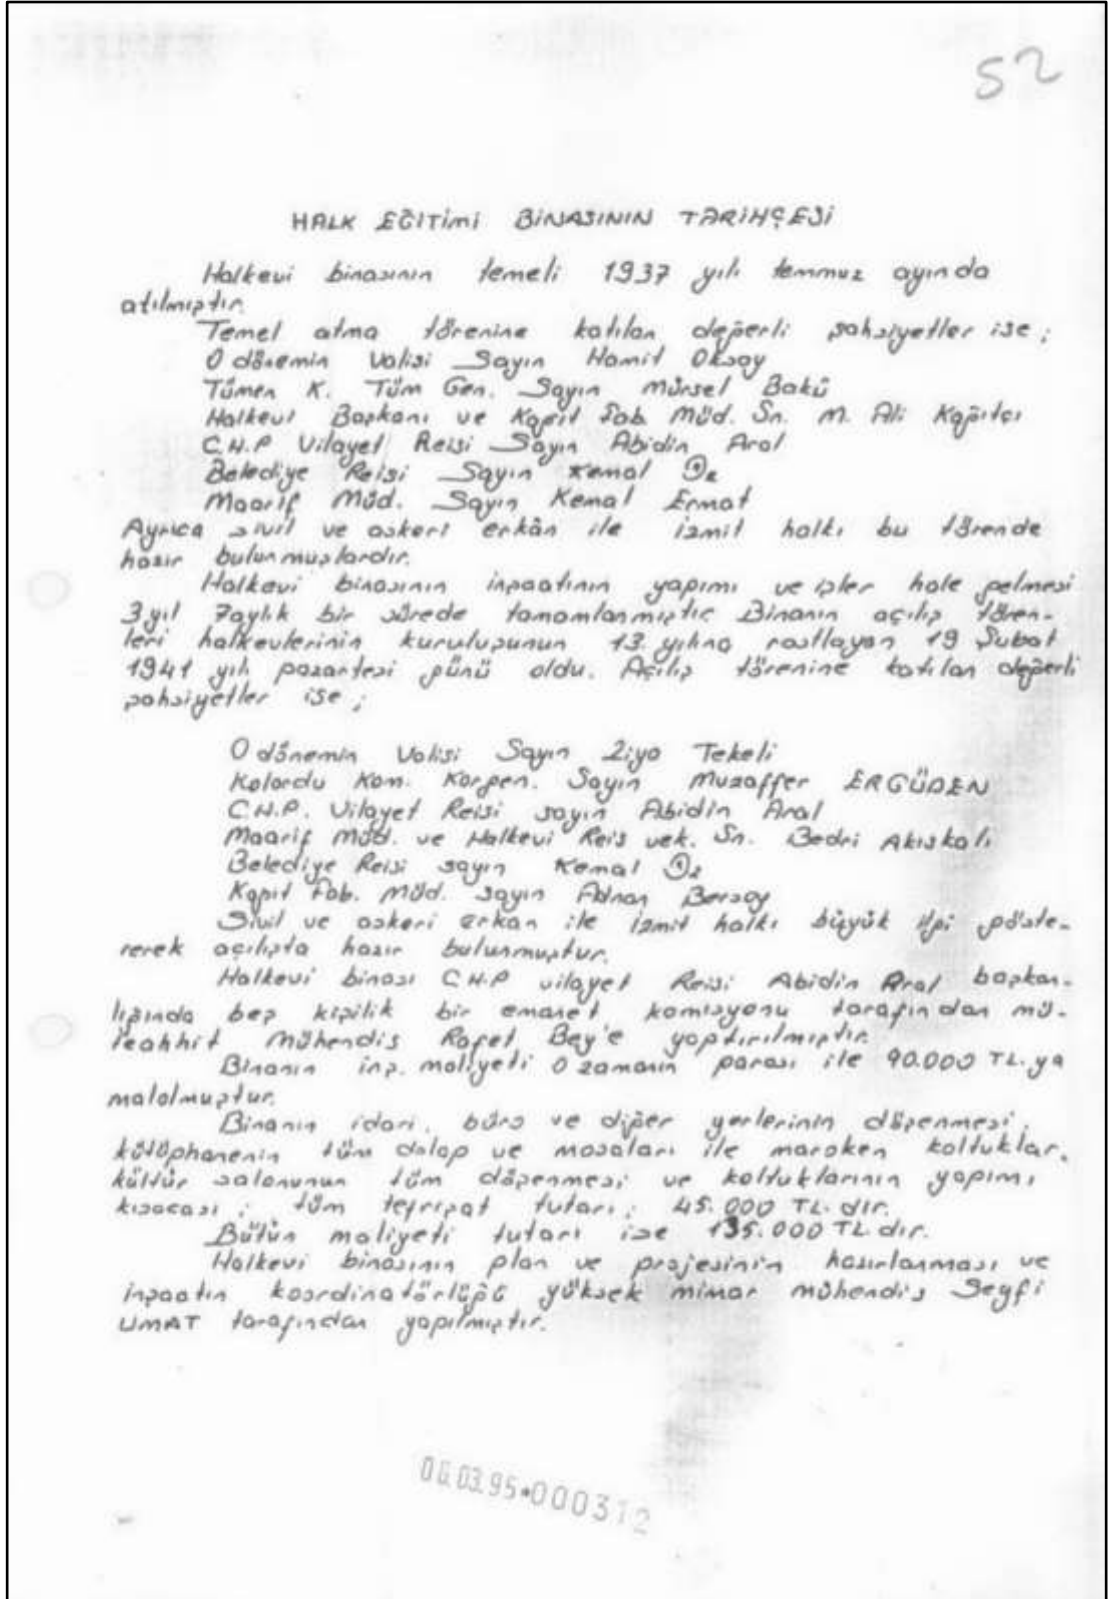 52
HALK EĞİTİMİ BİNASININ TARİHÇESİ
Halkevi binasının temeli 1937 yılı temmuz ayında
atılmıştır.
Temel atma törenine katılan değerli şahsiyetler ise;
O dönemin Valisi Sayın Hamit Oksay
Tümen K. Tüm Gen. Sayın Mürsel Bakü
Halkevi Başkanı ve Kağıt Fab. Müd. Sn. M. Ali Kağıtçı
C.H.P Vilayet Reisi Sayın Abidin Aral
Belediye Reisi Sayın Kemal Öz
Maarif Müd. Sayın Kemal Ermat
Ayrıca sivil ve askeri erkân ile izmit halkı bu törende
hazır bulunmuşlardır.
Halkevi binasının inşaatının yapımı ve işler hale gelmesi
3 yıl 7 aylık bir sürede tamamlanmıştır Binanın açılış tören-
leri halkevlerinin kuruluşunun 13. yılına rastlayan 19 Şubat
1941 yılı pazartesi günü oldu. Açılış törenine katılan değerli
şahsiyetler ise;
O dönemin Valisi Sayın Ziya Tekeli
Kolordu Kom. Korgen. Sayın Muzaffer ERGÜDEN
C.H.P. Vilayet Reisi sayın Abidin Aral
Maarif Müd. ve Halkevi Reis vek. Sn. Bedri Akıskalı
Belediye Reisi sayın Kemal Öz
Kağıt Fab. Müd. sayın Adnan Bersoy
Sivil ve askeri erkan ile izmit halkı büyük ilgi göste-
rerek açılışta hazır bulunmuştur.
Halkevi binası C.H.P vilayet Reisi Abidin Aral başkan-
lığında beş kişilik bir emanet komisyonu tarafından mü-
teahhit Mühendis Rafet Bey'e yaptırılmıştır.
Binanın inş. maliyeti o zamanın parası ile 90.000 TL.ya
malolmuştur.
Binanın idari, büro ve diğer yerlerinin döşenmesi,
kütüphanenin tüm dolap ve masaları ile maroken koltuklar,
kültür salonunun tüm döşenmesi ve koltuklarının yapımı
kısacası; tüm tefrişat tutarı; 45.000 TL.dır.
Bütün maliyeti tutarı ise 135.000 TL.dır.
Halkevi binasının plan ve projesinin hazırlanması ve
inşaatın koordinatörlüğü yüksek mimar mühendis Seyfi
UMAT tarafından yapılmıştır.
06.03.95•000312